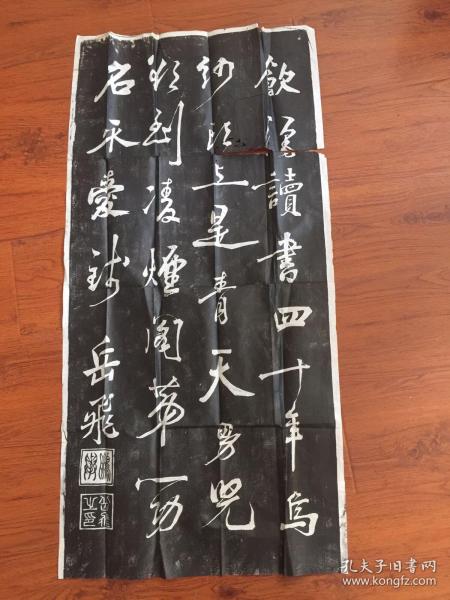 飲酒讀書四十年烏
紗頭上是青天男兒
欲到凌煙閣第一功
名不愛錢 岳飛
鵬舉
岳飛之印
孔夫子旧书网
www.kongfz.com